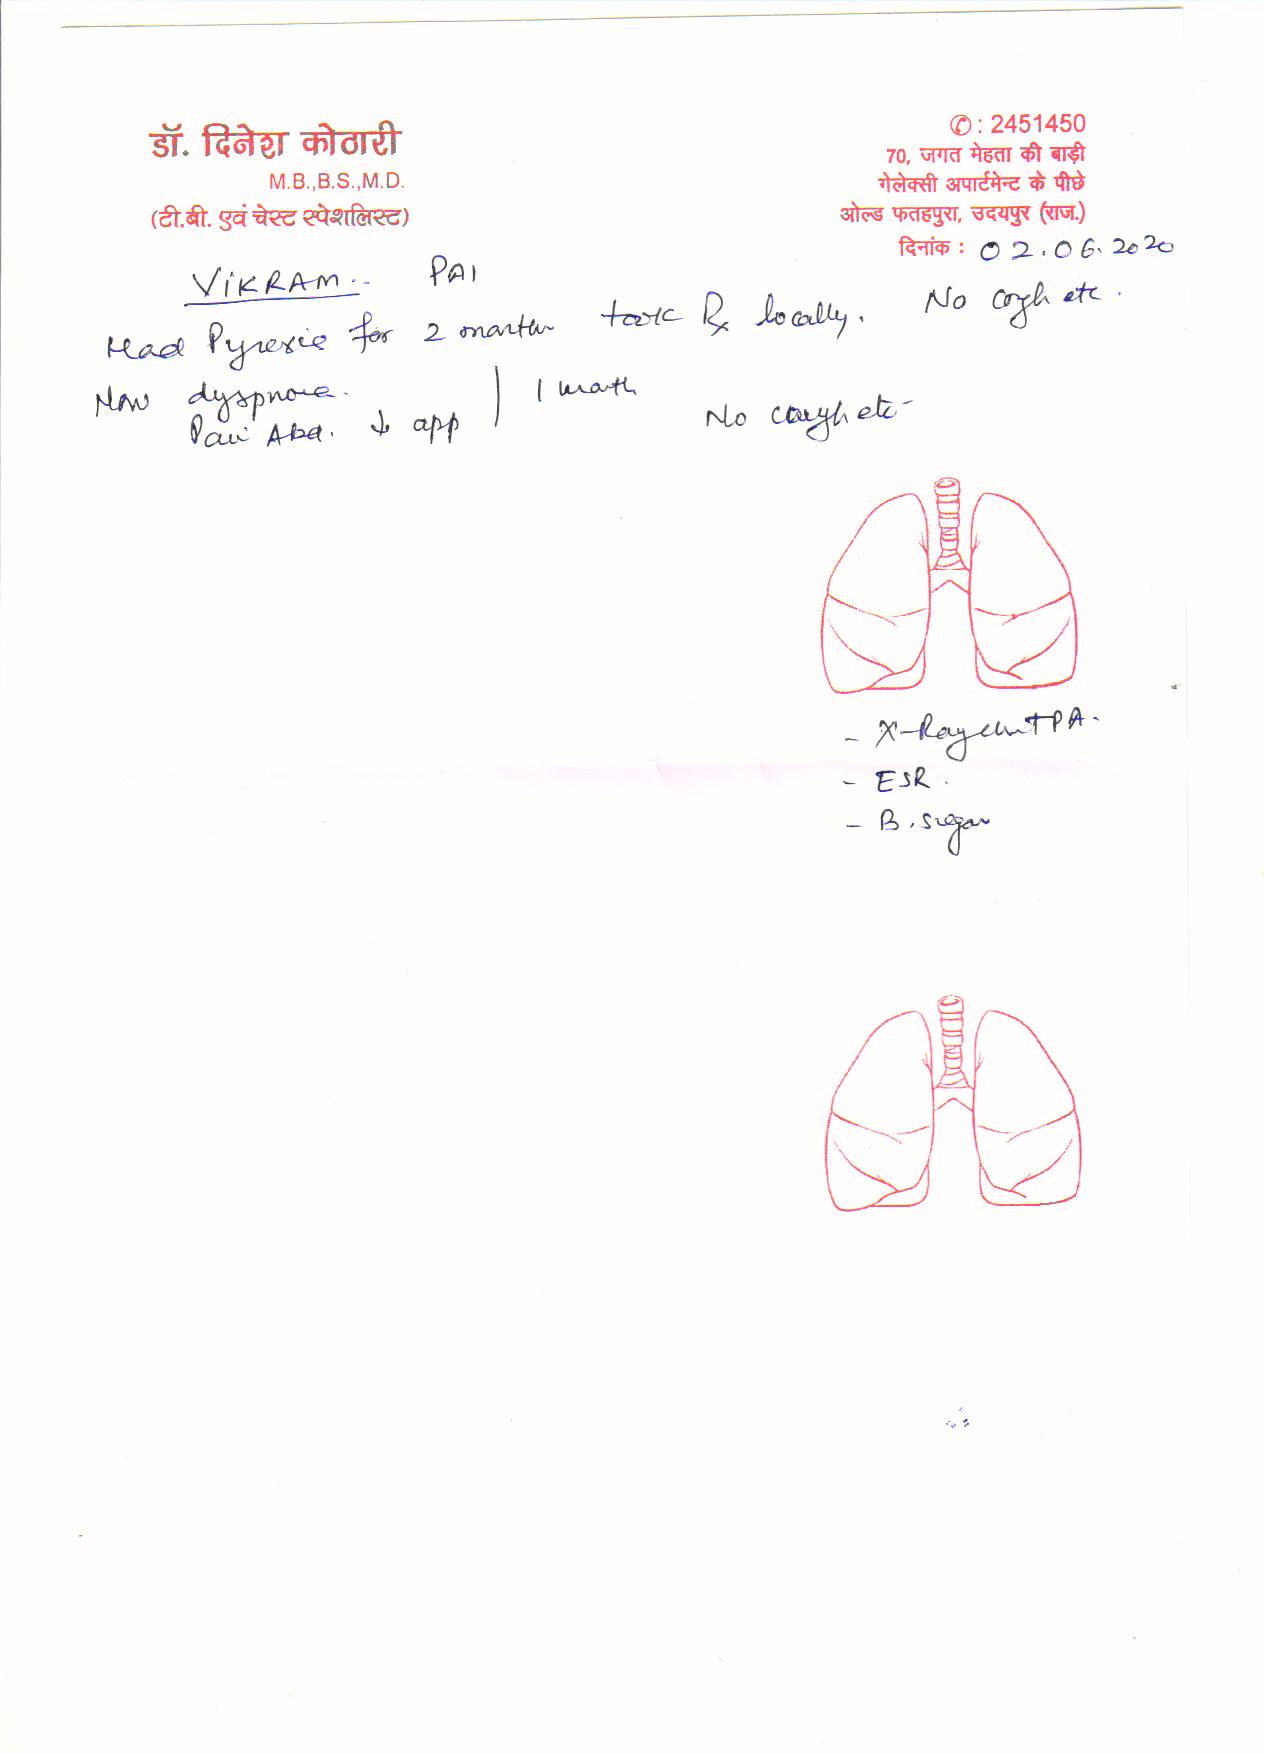 डॉ. दिनेश कोठारी
M.B.,B.S.,M.D.
(टी.बी. एवं चेस्ट स्पेशलिस्ट)
✆ : 2451450
70, जगत मेहता की बाड़ी
गेलेक्सी अपार्टमेन्ट के पीछे
ओल्ड फतहपुरा, उदयपुर (राज.)
दिनांक : 02.06.2020
ViKRAM PAI
Had Pyrexia for 2 months took Rx locally. No cough etc.
Now dyspnoea.
Pain Abd. ↓ app 1 month No cough etc
- X-Ray chest PA.
- ESR.
- B. Sugar